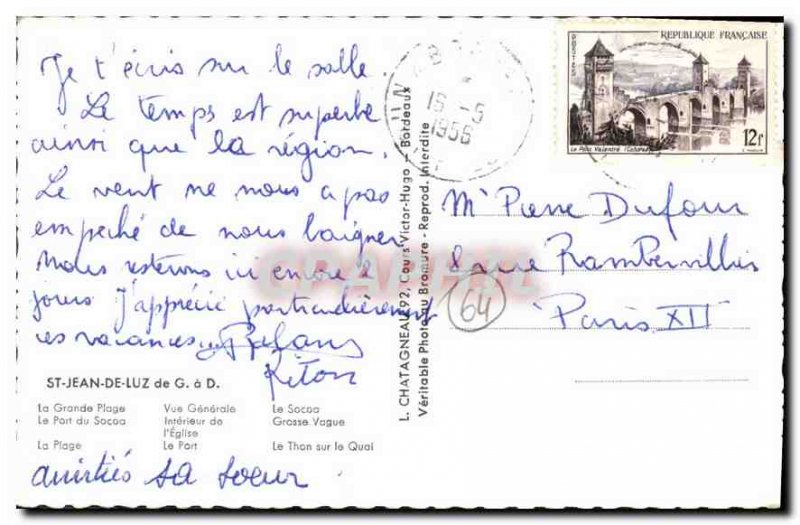 Je t'écris sur le sable.
Le temps est superbe
ainsi que la région.
Le vent ne nous a pas
empêché de nous baigner
Nous resterons ici encore 2
jours J'apprécie particulièrement
ces vacances
Kiton
ST-JEAN-DE-LUZ de G. à D.
La Grande Plage Vue Générale Le Socoa
Le Port du Socoa Intérieur de l'Église Grosse Vague
La Plage Le Port Le Thon sur le Quai
amitiés sa soeur
L. CHATAGNEAU 92, Cours Victor-Hugo — Bordeaux
Véritable Photo au Bromure - Reprod. Interdite
16-5
1956
RÉPUBLIQUE FRANÇAISE
POSTES
Le Pont Valentré (Cahors)
12f
Mr Pierre Dufour
8 rue Rambervillers
Paris XII
64